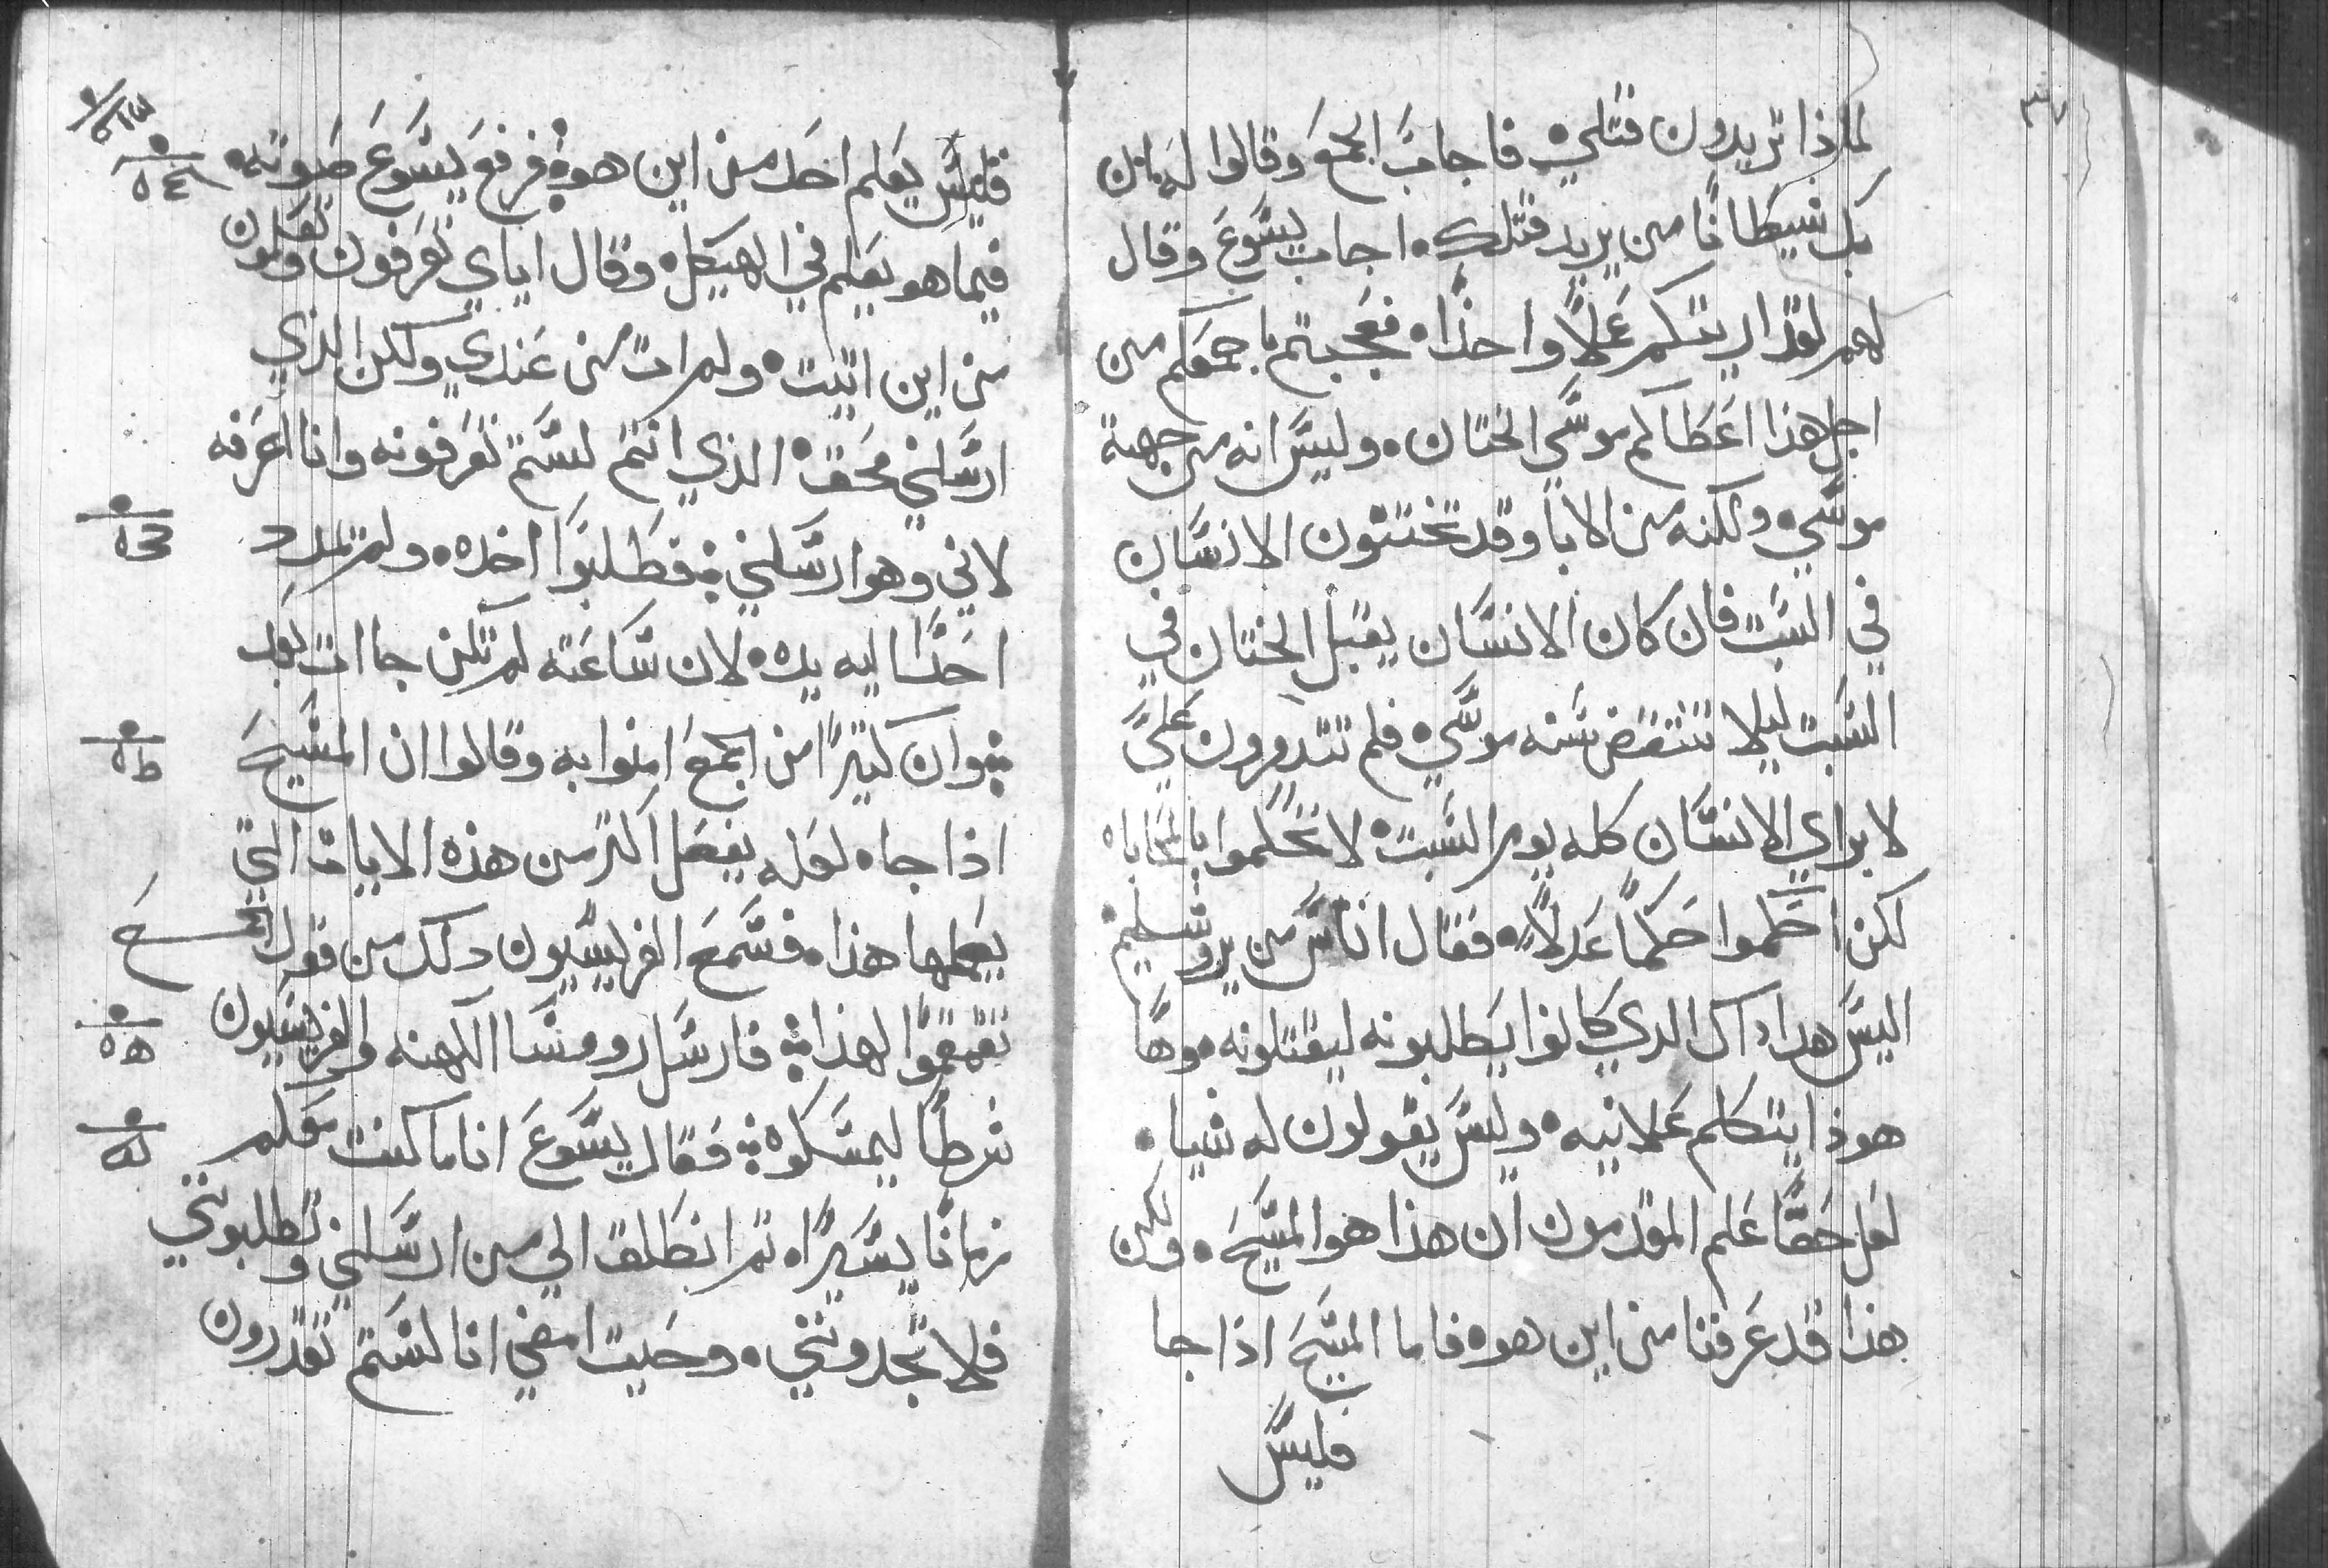 لماذا تريدون قتلي فاجاب الجمع وقالوا له بان
بك شيطانًا من يريد قتلك اجاب يسوع وقال
لهم لقد اريتكم عملًا واحدًا فعجبتم باجمعكم من
اجل هذا اعطاكم موسي الختان وليس انه من جهة
موسي ولكنه من الابا وقد تختنون الانسان
في السبت فان كان الانسان يقبل الختان في
السبت ليلا تنتقض سنه موسي فلم تتدمرون علي
لابراي الانسان كله يوم السبت لا تحكموا بالمحاباه
لكن احكموا حكمًا عدلًا فقال اناس من يروشليم
اليس هدا داك الدي كانوا يطلبونه ليقتلونه وها
هوذا يتكلم علانيه وليس يقولون له شيا
لعل حقًا علم المقدمون ان هذا هو المسيح ولكن
هذا قد عرفنا من اين هو فاما المسيح اذا جا
فليس
فليس يعلم احد من اين هو فرفع يسوع صوته
فيما هو يعلم في الهيكل وقال اياي تعرفون وتعلمون
من اين اتيت ولم ات من عندي ولكن الذي
ارسلني محق الذي انتم لستم تعرفونه وانا اعرفه
لاني وهو ارسلني فطلبوا اخده ولم يمدد
احدًا اليه يده لان ساعته لم تكن جاات بعد
وان كثيرًا من الجمع امنوا به وقالوا ان المسيح
اذا جا لعله يفعل اكثر من هذه الايات التي
يعملها هذا فسمع الفريسيون دلك من قول الجمع
تقمقموا لهذا فارسل روسا الكهنه والفريسيون
شرطًا ليمسكوه فقال يسوع انا ماكث معكم
زمانًا يسيرًا ثم انطلق الي من ارسلني وتطلبونني
فلا تجدونني وحيت امضي انا لستم تقدرون